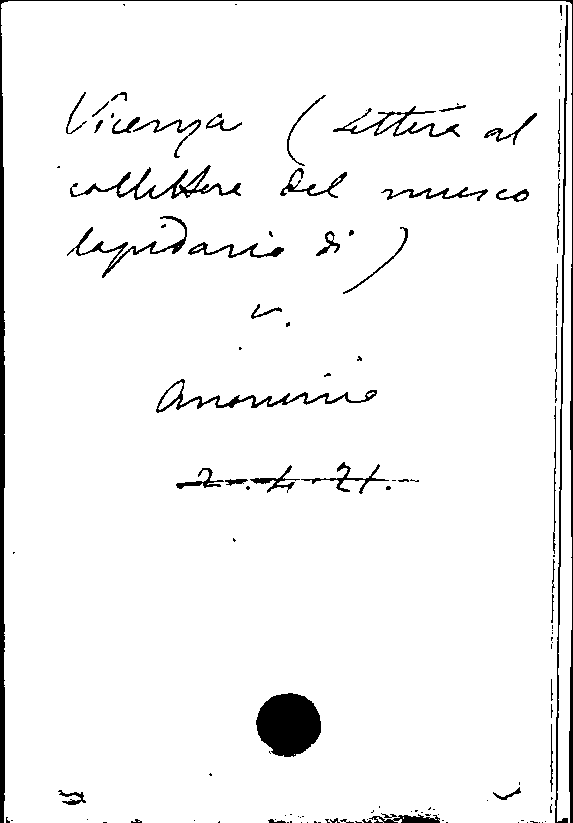 Vicenza (Lettera al
collettore del museo
lapidario di)
v.
Anonimo
2.4.21.